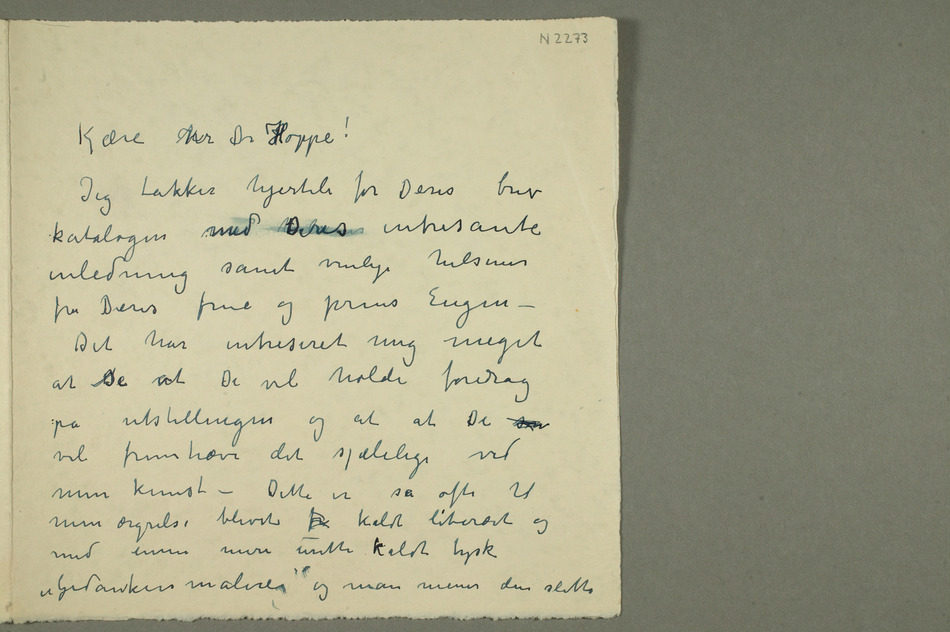 N 2273
Kjære Herr Dr Hoppe!
Jeg takker hjerteli for Deres brev
katalogen med Deres intresante
inledning samt venlige hilsener
fra Deres frue og prins Eugen –
Det har intreseret mig meget
at De at De vil holde foredrag
på utstillingen og at at De
vil fremhæve det sjælelige ved
min kunst – Dette er så ofte til
min ærgrelse blevet kaldt literært og
med ennu mere uret kaldt tysk
„Gedankenmalerei“ og man mener den slette